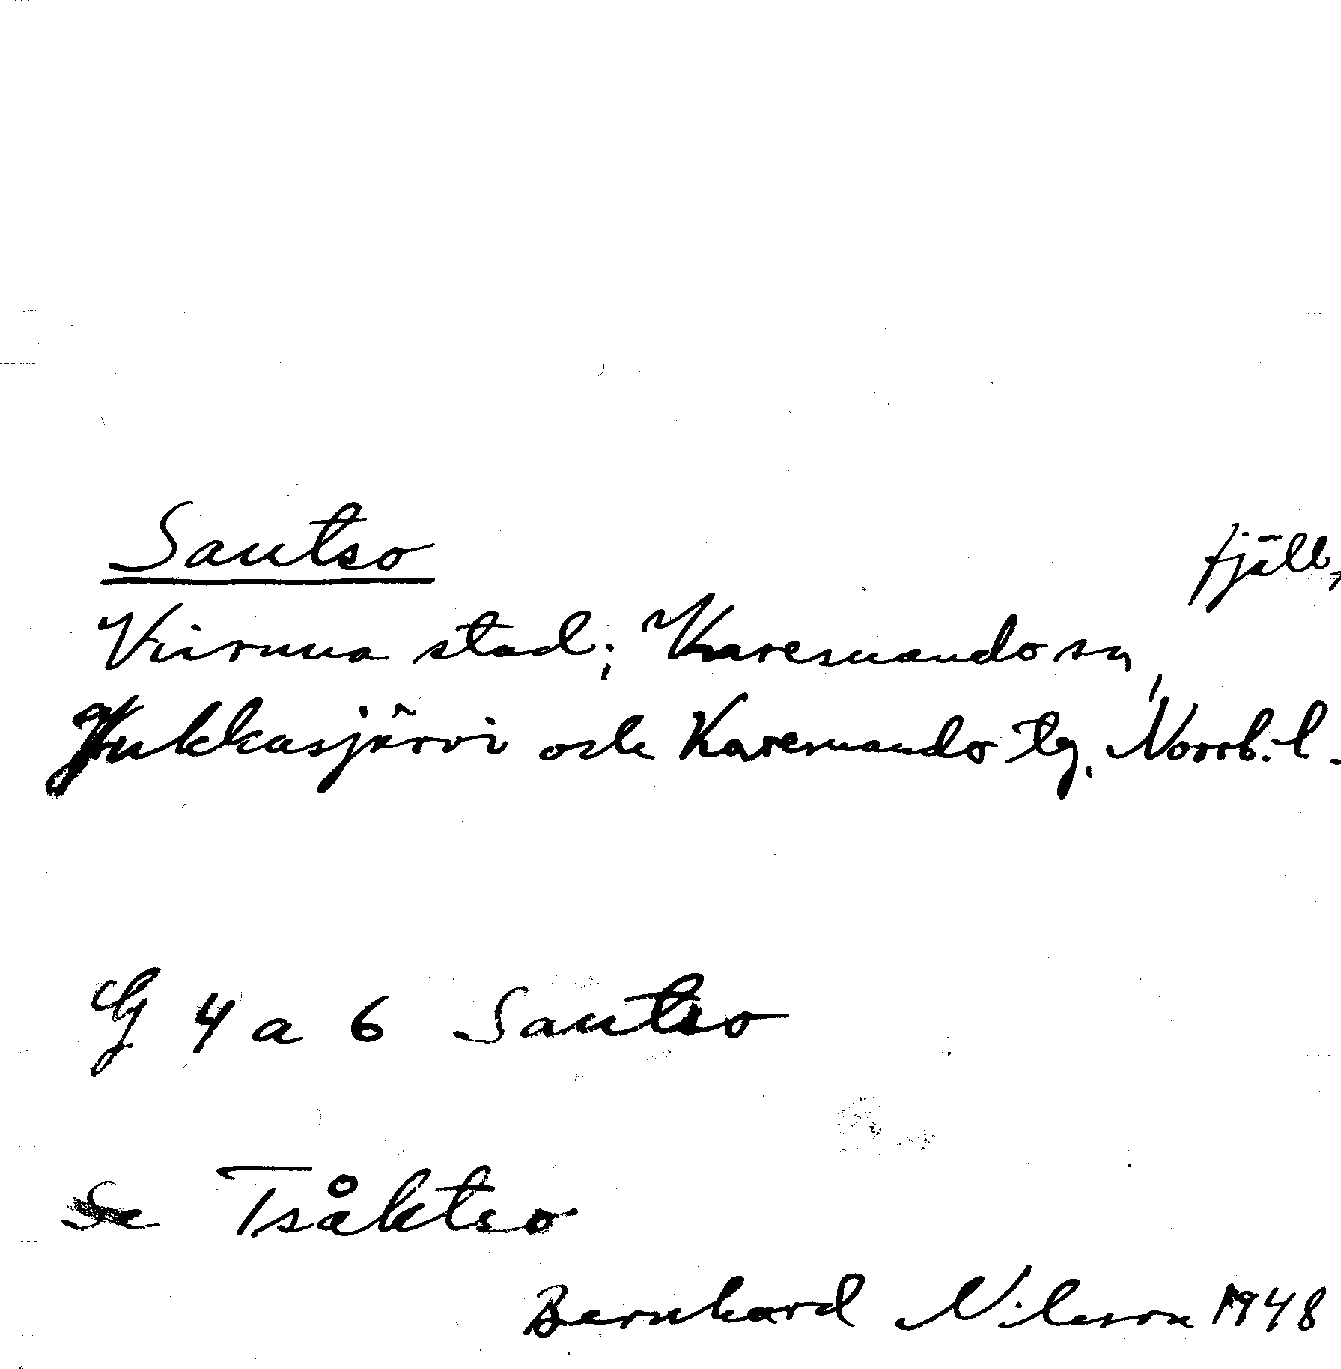 Sautso fjäll,
Kiruna stad; Karesuando sn,
Jukkasjärvi och Karesuando tg. Norrb. l.
G 4 a 6 Sautso
Se Tsåktso
Bernhard Nilsson 1948